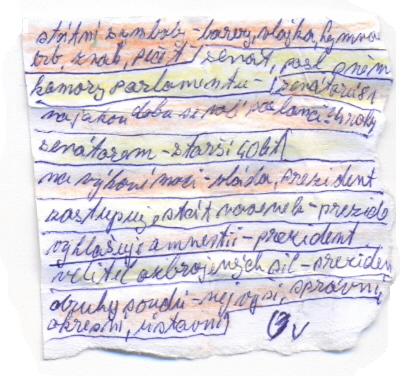 státní symboly - barvy, vlajka, hymna
znak, pečeť / senát, posl. sněm
komory parlamentu - senátorů 81
na jakou dobu se volí poslanci 4 roky
senátorem - starší 40 let
na výkoné moci - vláda, prezident
zastupuje stát navenek - prezide
vyhlašuje amnestii - prezident
velitel ozbrojených sil - preziden
druhy soudů - nejvyší, správní,
okresní, ústavní